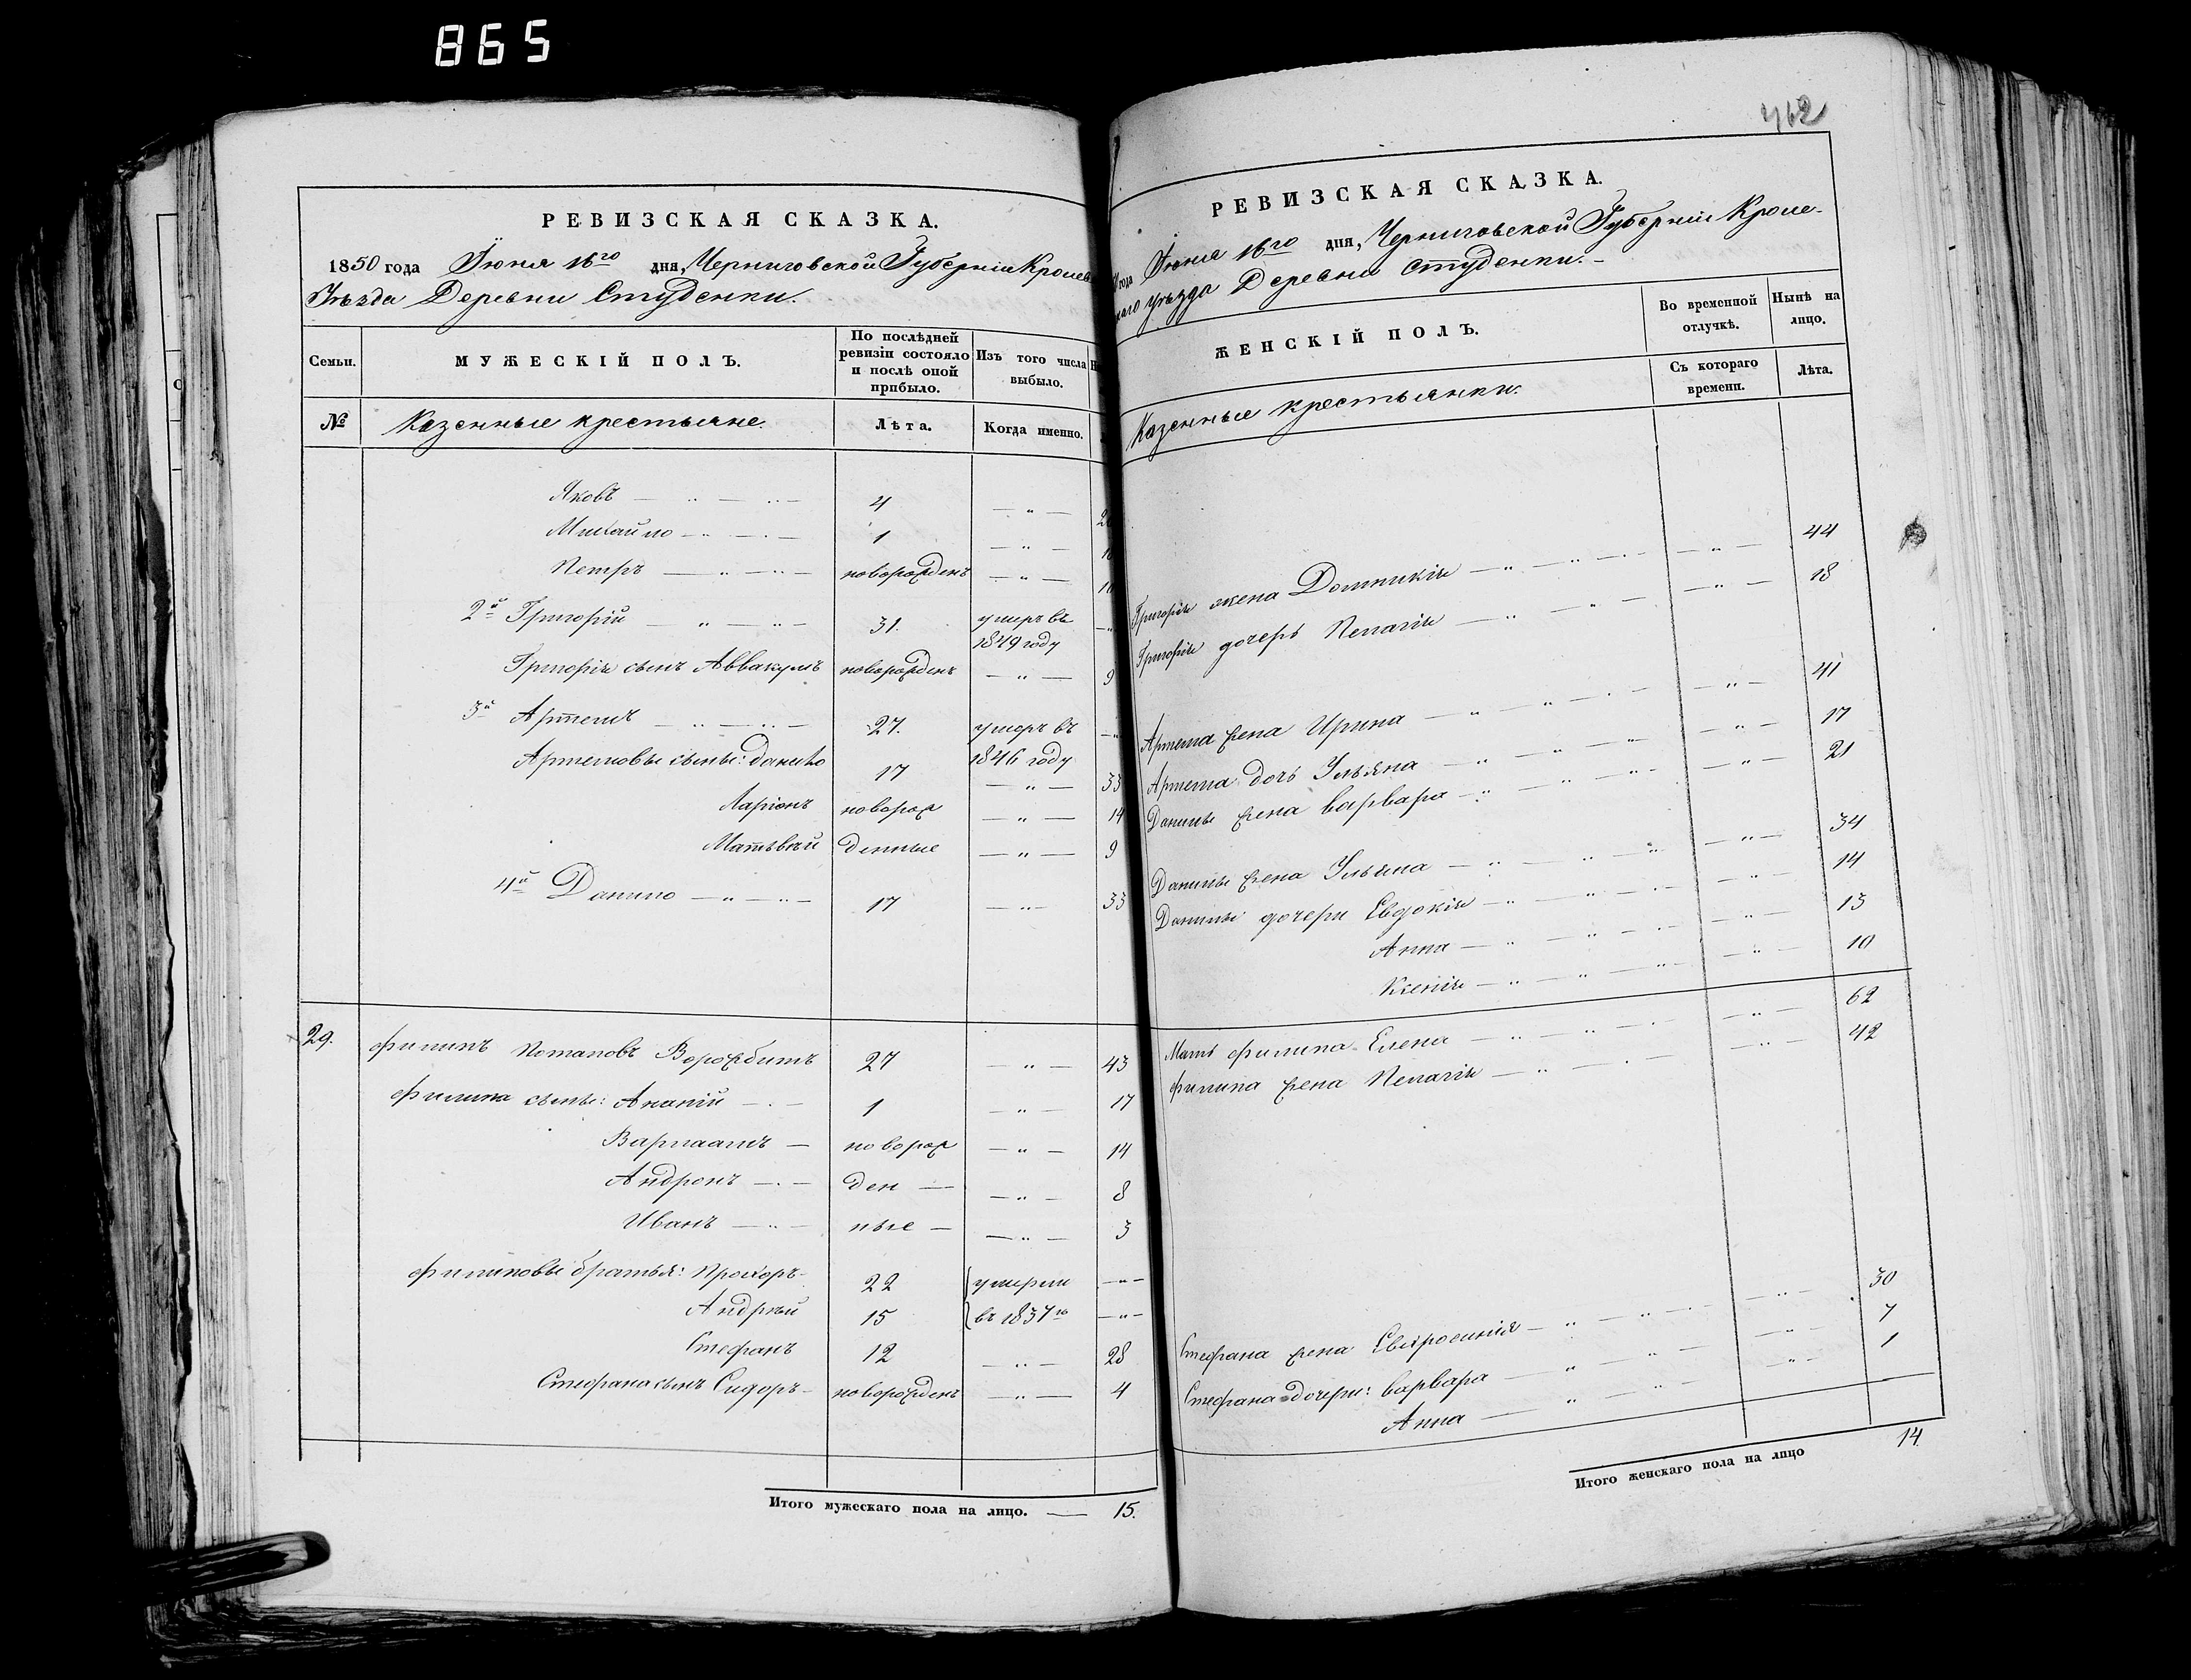 865
РЕВИЗСКАЯ СКАЗКА.
1850 года Іюня 16го дня, Черниговской Губерніи Кролев
Уѣзда Деревни Студенки.
Семьи.
МУЖЕСКІЙ ПОЛЪ.
По послѣдней
ревизіи состояло
и послѣ оной
прибыло.
Изъ того числа
выбыло.
№
Казенные крестьяне.
Лѣта.
Когда именно.
Яковъ — " — " — 4 — " —
Михайло — " — " — 1 — " —
Петръ — " — " — новорожденъ — " —
2й Григорій — " — " — 31. умеръ въ
1849 году
Григорія сынъ Аввакумъ новорожденъ — " — 9
3й Артемъ — " — " — 27. умеръ въ
1846 году
Артемовы сыны: Данило 17 — " — 33
Ларіонъ новорож — " — 14
Матвѣй денные — " — 9
4й Данило — " — " — 17 — " — 33
29. Филипъ Потаповъ Ворожбитъ 27 — " — 43
Филипа сыны: Ананій — " — 1 — " — 17
Варлаамъ — новорож — " — 14
Андронъ — " — ден — — " — 8
Иванъ — " — ные — — " — 3
Филиповы братья: Прохоръ — 22 умерли — " —
Андрѣй 15 въ 1837го — " —
Стефанъ 12 — " — 28
Стефана сынъ Сидоръ — новорожденъ — " — 4
Итого мужескаго пола на лицо. — 15.
462
РЕВИЗСКАЯ СКАЗКА.
года Іюня 16го дня, Черниговской Губерніи Кроле-
каго уѣзда Деревни Студенки. —
ЖЕНСКІЙ ПОЛЪ.
Во временной
отлучкѣ.
Нынѣ на
лицо.
Съ котораго
времени.
Лѣта.
Казенные крестьянки.
Григорія жена Домникія — " — " — " — 44
Григорія дочерь Пелагія — " — " — " — 18
Артема жена Ирина — " — " — " — 41
Артема дочь Ульяна — " — " — " — 17
Данилы жена Варвара — " — " — " — 21
Данилы жена Ульяна — " — " — " — 34
Данилы дочери Евдокія — " — " — " — 14
Анна — " — " — " — 13
Ксенія — " — " — " — 10
Мать Филипа Елена — " — " — " — 62
Филипа жена Пелагія — " — " — " — 42
Стефана жена Евфросинія — " — " — " — 30
Стефана дочери: Варвара — " — " — " — 7
Анна — " — " — " — 1
Итого женскаго пола на лицо 14.